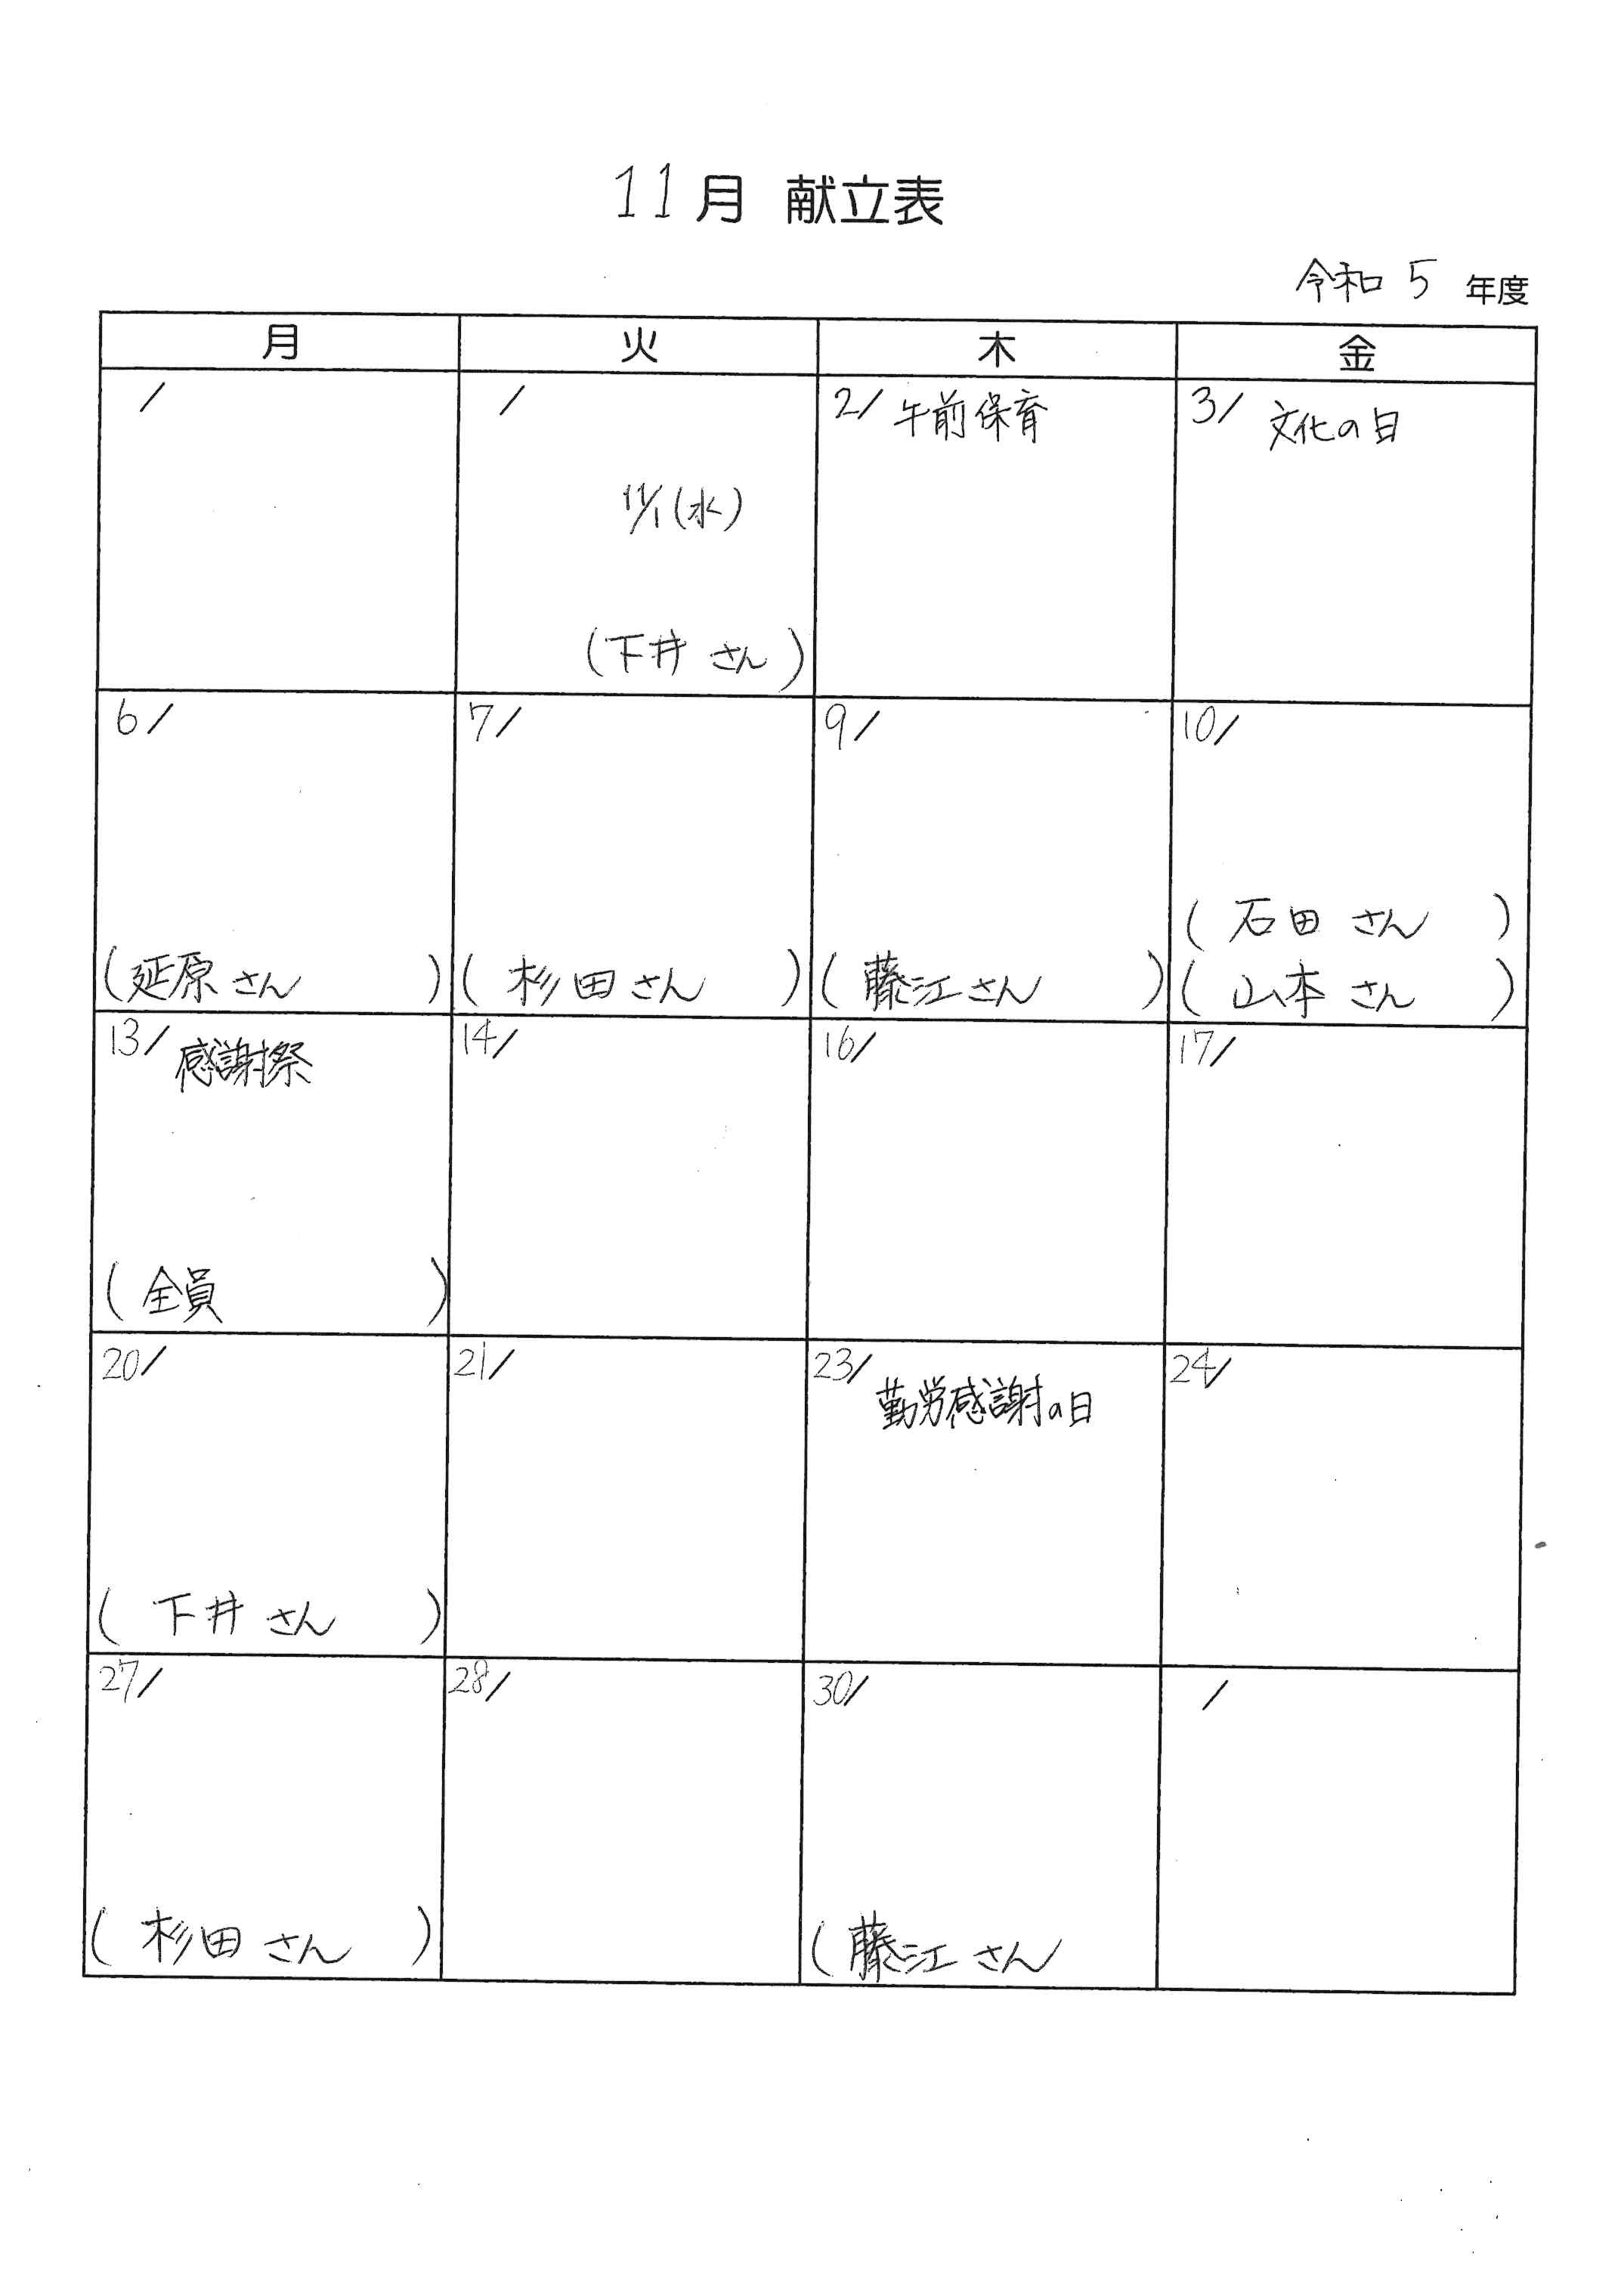 11月 献立表
令和 5 年度
月 火 木 金
/ / 2/ 午前保育 3/ 文化の日
11/1(水)
(下井 さん)
6/ 7/ 9/ 10/
(石田 さん)
(延原 さん) (杉田 さん) (藤江 さん) (山本 さん)
13/ 感謝祭 14/ 16/ 17/
(全員)
20/ 21/ 23/ 勤労感謝の日 24/
(下井 さん)
27/ 28/ 30/ /
(杉田 さん) (藤江 さん